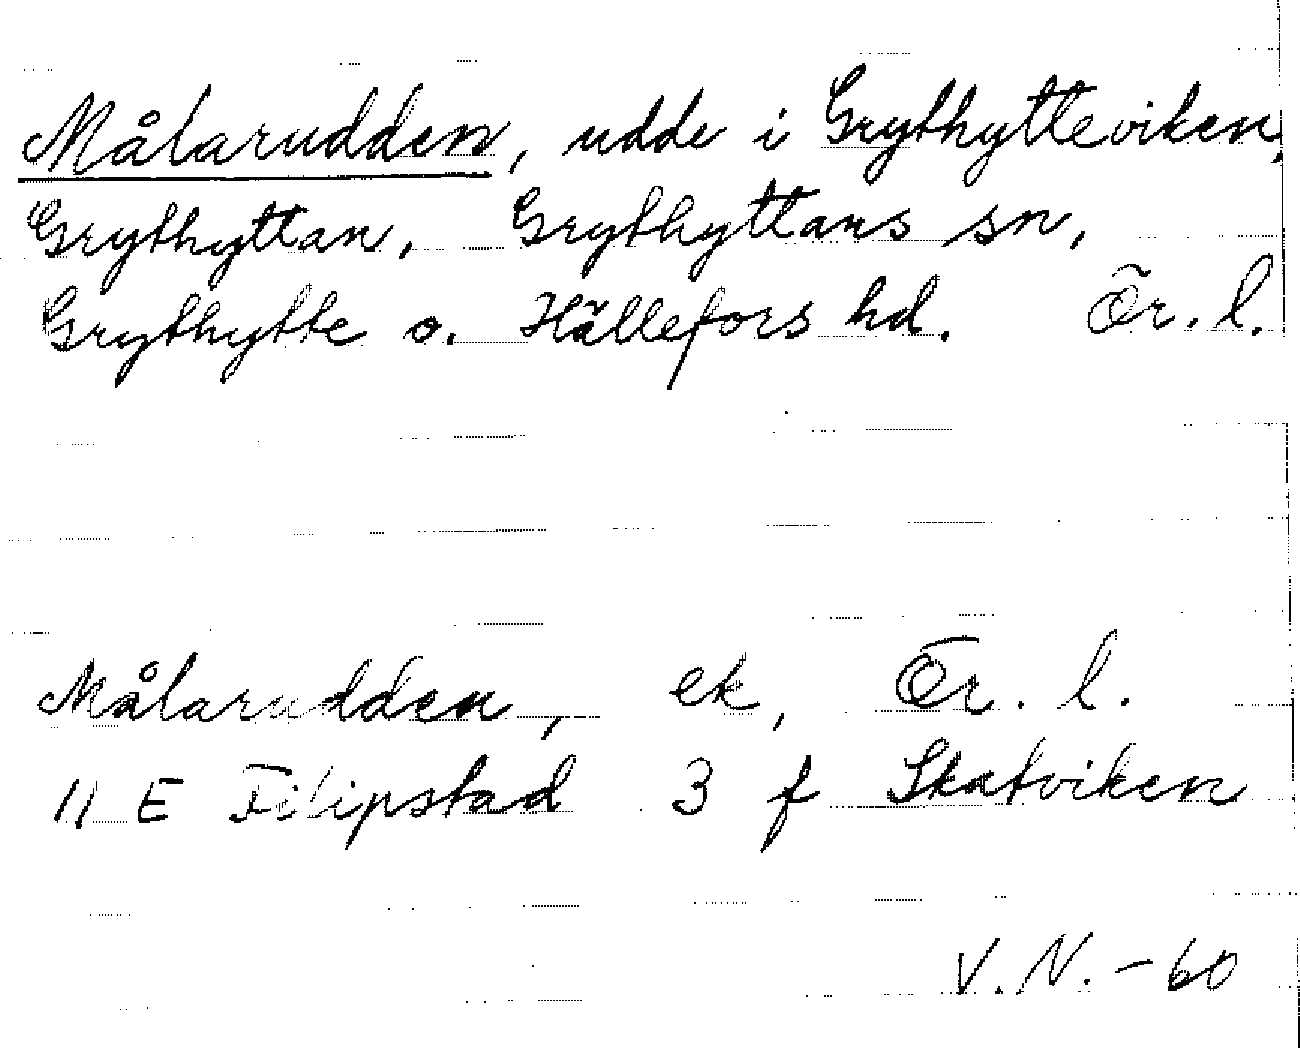 Målarudden, udde i Grythytteviken,
Grythyttan, Grythyttans sn,
Grythytte o. Hällefors hd. Ör. l.
Målarudden, ek, Ör. l.
11 E Filipstad 3 f Skatviken
V. N. - 60